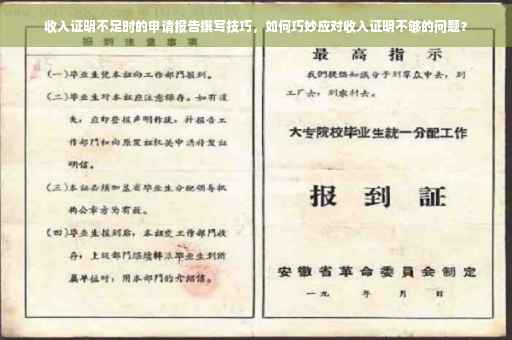 收入证明不足时的申请报告撰写技巧，如何巧妙应对收入证明不够的问题？
报到注意事项
(一)毕业生凭本证向工作部门报到。
(二)毕业生对本证应注意保存。如有遗
失，应即登报声明作废，并报告工
作部门和向原发证机关申请补发证
明信。
(三)本证必须加盖省毕业生分配领导机
构公章方为有效。
(四)毕业生报到后，本证交工作部门收
存；上级部门继续转派毕业生到所
属单位时，用本部门的介绍信。
最高指示
我们提倡知识分子到群众中去，到
工厂去，到农村去。
大专院校毕业生统一分配工作
报到证
安徽省革命委员会制定
一九 年 月 日